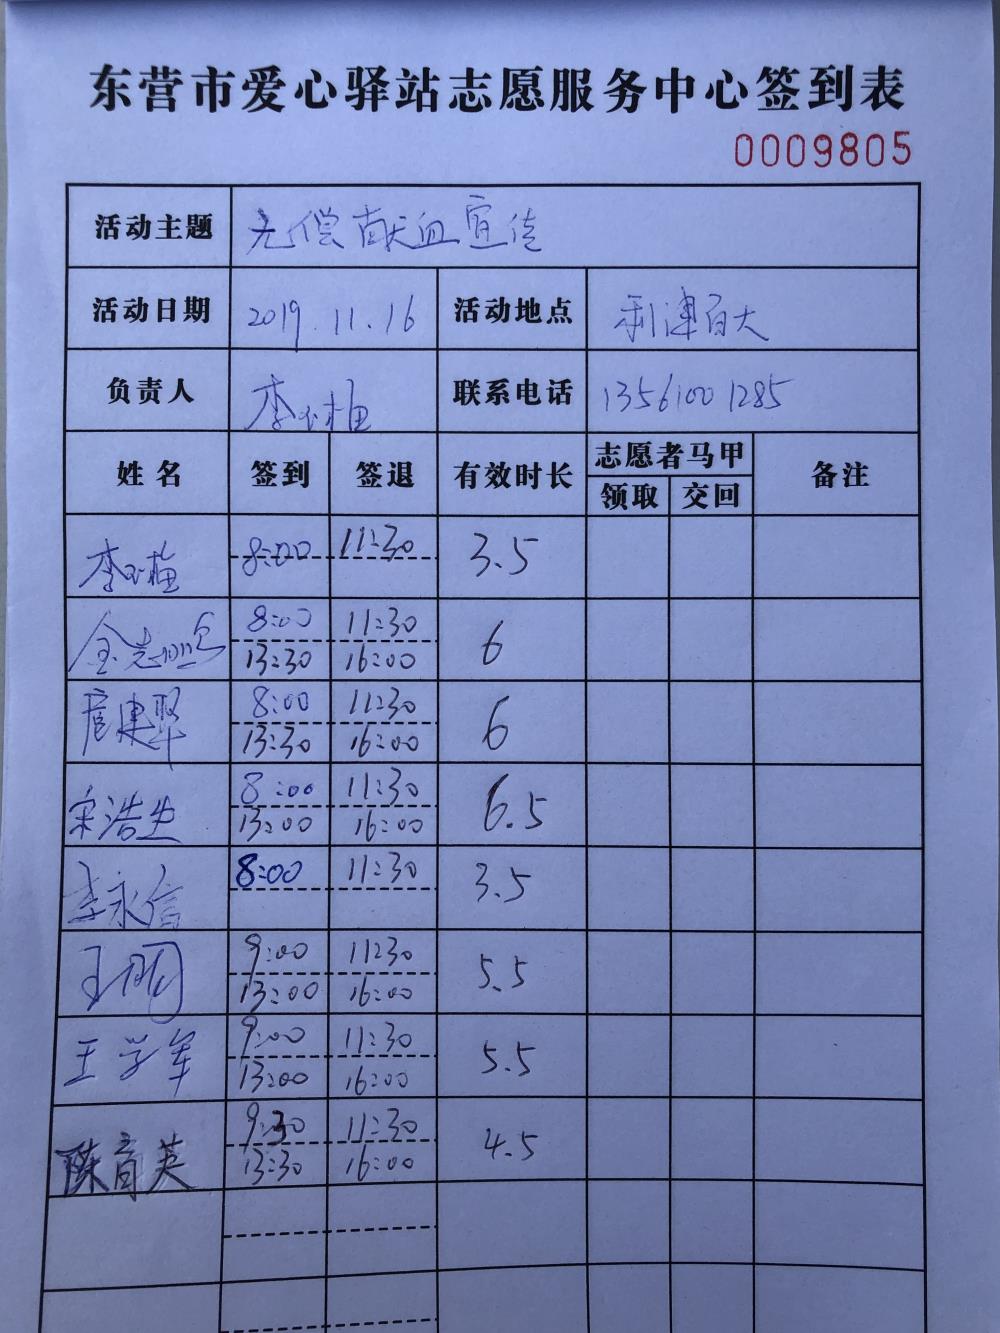 东营市爱心驿站志愿服务中心签到表
0009805
活动主题 无偿献血宣传
活动日期 2019.11.16 活动地点 利津百大
负责人 李玉梅 联系电话 13561001285
姓名 签到 签退 有效时长 志愿者马甲 备注
领取 交回
李玉梅 8:00 11:30 3.5
8:00 11:30 6
13:30 16:00
扈建翠 8:00 11:30 6
13:30 16:00
宋浩生 8:00 11:30 6.5
13:00 16:00
李永信 8:00 11:30 3.5
王刚 9:00 11:30 5.5
13:00 16:00
王学军 9:00 11:30 5.5
13:00 16:00
陈育英 9:30 11:30 4.5
13:30 16:00